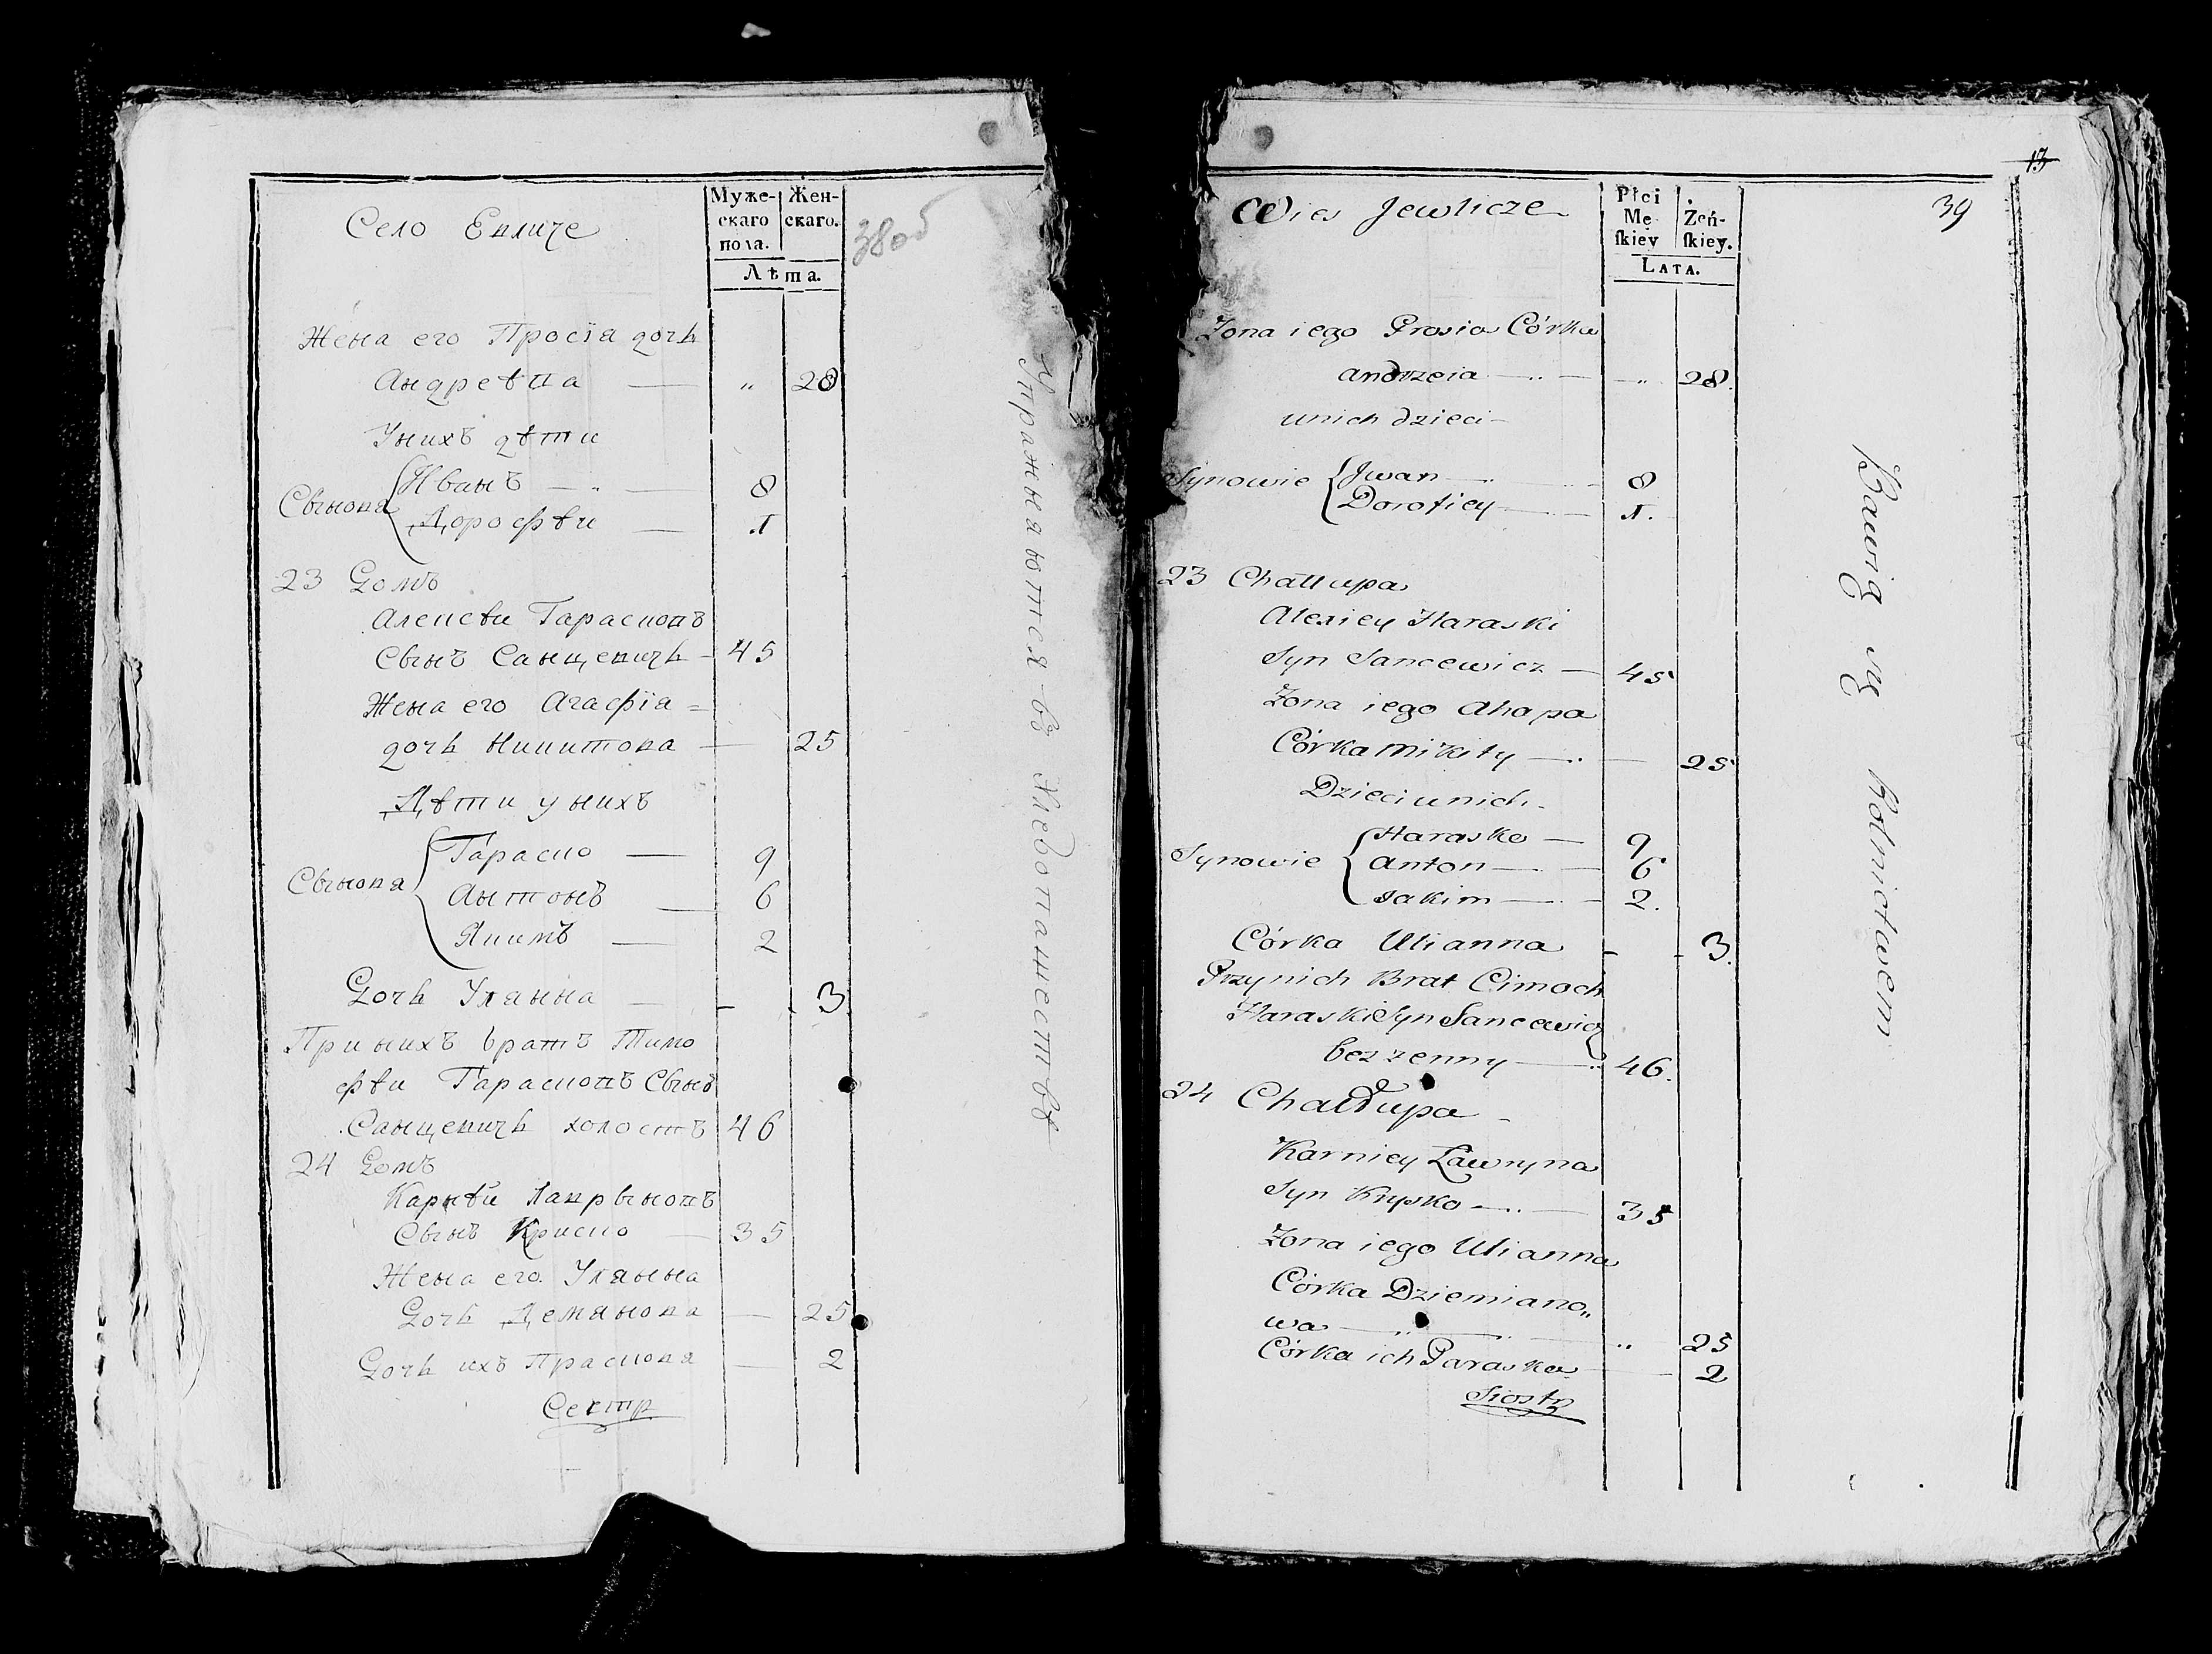 Село Евличе
Муже-
скаго
пола.
Жен-
скаго.
Лѣта.
38об
Жена его Просїя дочь
Андреева — „ 28
У нихъ дѣти
Сыновя
Иванъ — 8
Дорофѣи — 1
23 Домъ
Алексѣи Тарасковъ
Сынъ Санцевичь — 45
Жена его Агафїя
дочь Никитова — 25
Дѣти у нихъ
Сыновя
Тараско — 9
Антонъ — 6
Якимъ — 2
Дочь Улянна — 3
При нихъ братъ Тимо
фѣи Тарасковъ Сынъ
Санцевичь холостъ 46
24 Домъ
Карнѣй Лаврыновъ
Сынъ Криско — 35
Жена его Улянна
Дочь Демянова — 25
Дочь ихъ Прасковя — 2
Сестр
Упражняются въ Хлебопашествѣ
Wies Jewlicze
Płci
Mę-
skiey
Żeń-
skiey.
LATA.
13
39
Zona iego Prosia Córka
Andrzeia — „ 28.
u nich dzieci
Synowie
Jwan — 8
Dorofiey — 1.
23 Chałłupa
Alexiey Haraski
Syn Sancewicz — 45
Zona iego Ahapa
Córka Mikity — 25
Dzieci u nich
Synowie
Harasko — 9
Anton — 6
Jakim — 2.
Córka Ulianna - 3.
Przy nich Brat Cimoch
Haraski Syn Sancewicz
bezzenny — 46.
24 Chałłupa
Karniey Ławryna
Syn Krysko — 35
Zona iego Ulianna
Córka Dziemiano„
wa — „ 25
Córka ich Paraska — 2
Siostr
Bawią się Rolnictwem